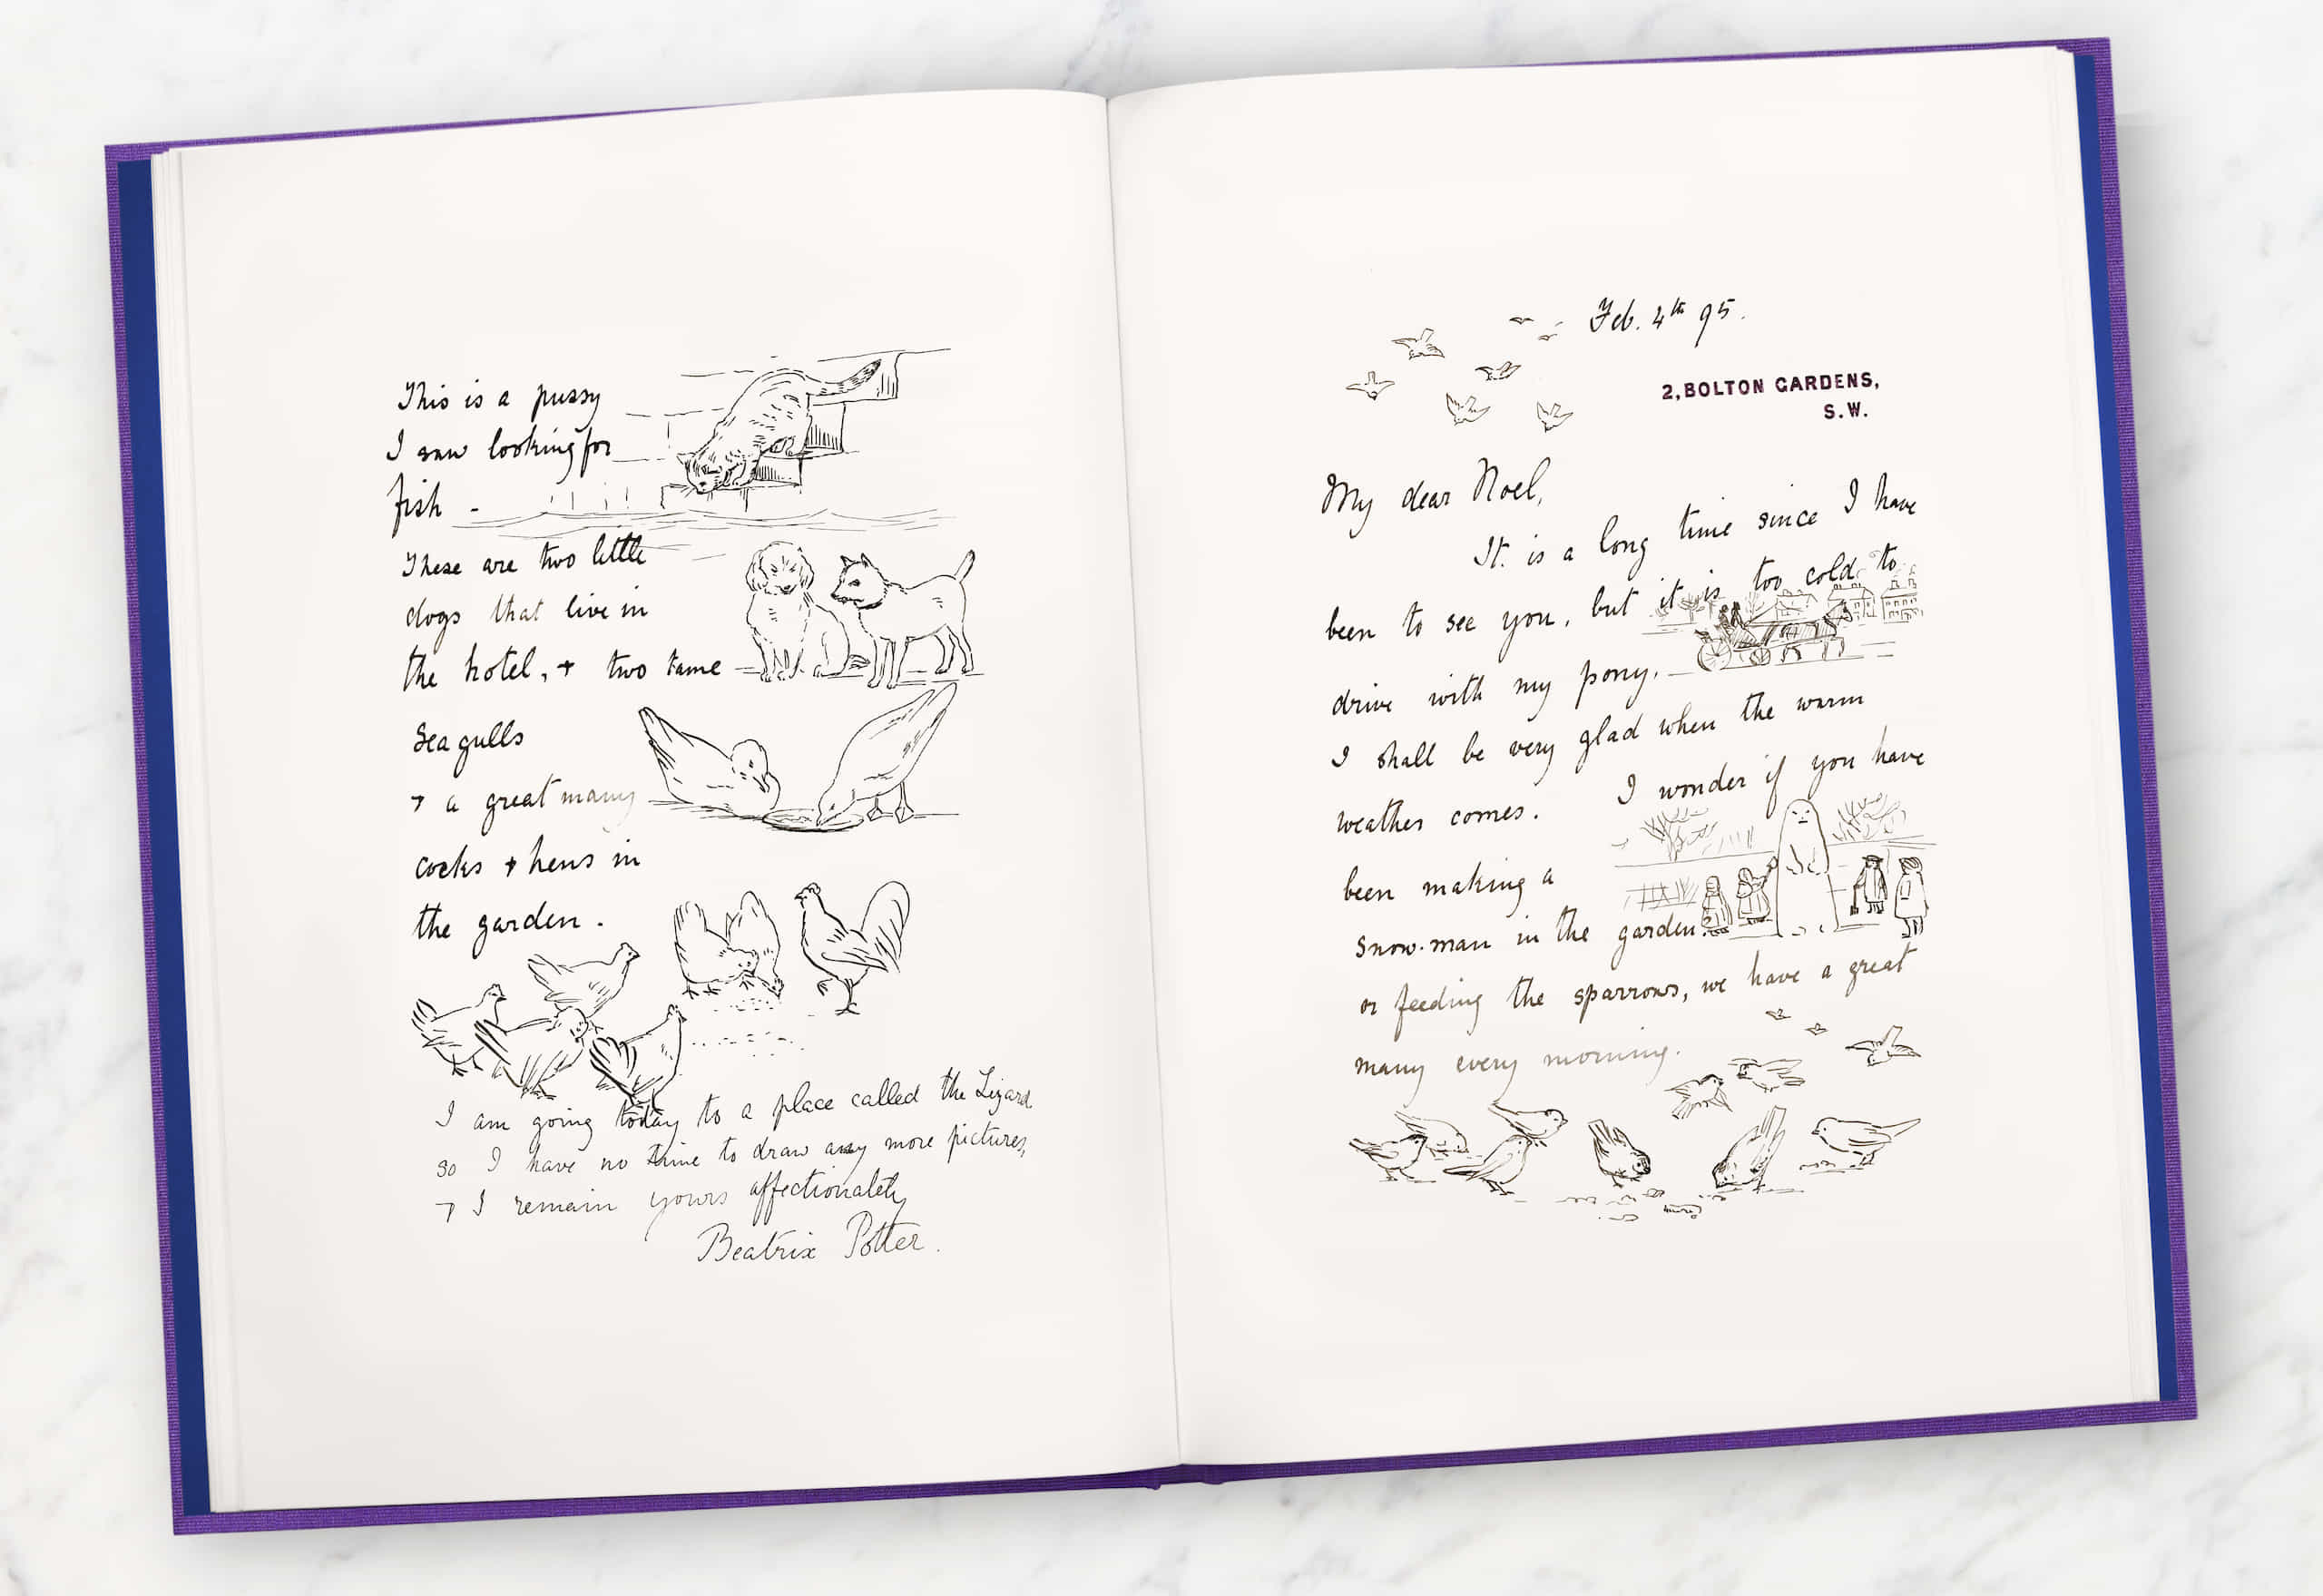 This is a pussy
I saw looking for
fish -
These are two little
dogs that live in
the hotel, + two tame
Sea gulls
+ a great many
cocks + hens in
the garden.
I am going today to a place called the Lizard
so I have no time to draw any more pictures,
+ I remain yours affectionately
Beatrix Potter.
Feb. 4th 95.
2, BOLTON GARDENS,
S.W.
My dear Noel,
It is a long time since I have
been to see you, but it is too cold to
drive with my pony.
I shall be very glad when the warm
weather comes. I wonder if you have
been making a
snow-man in the garden?
or feeding the sparrows, we have a great
many every morning.